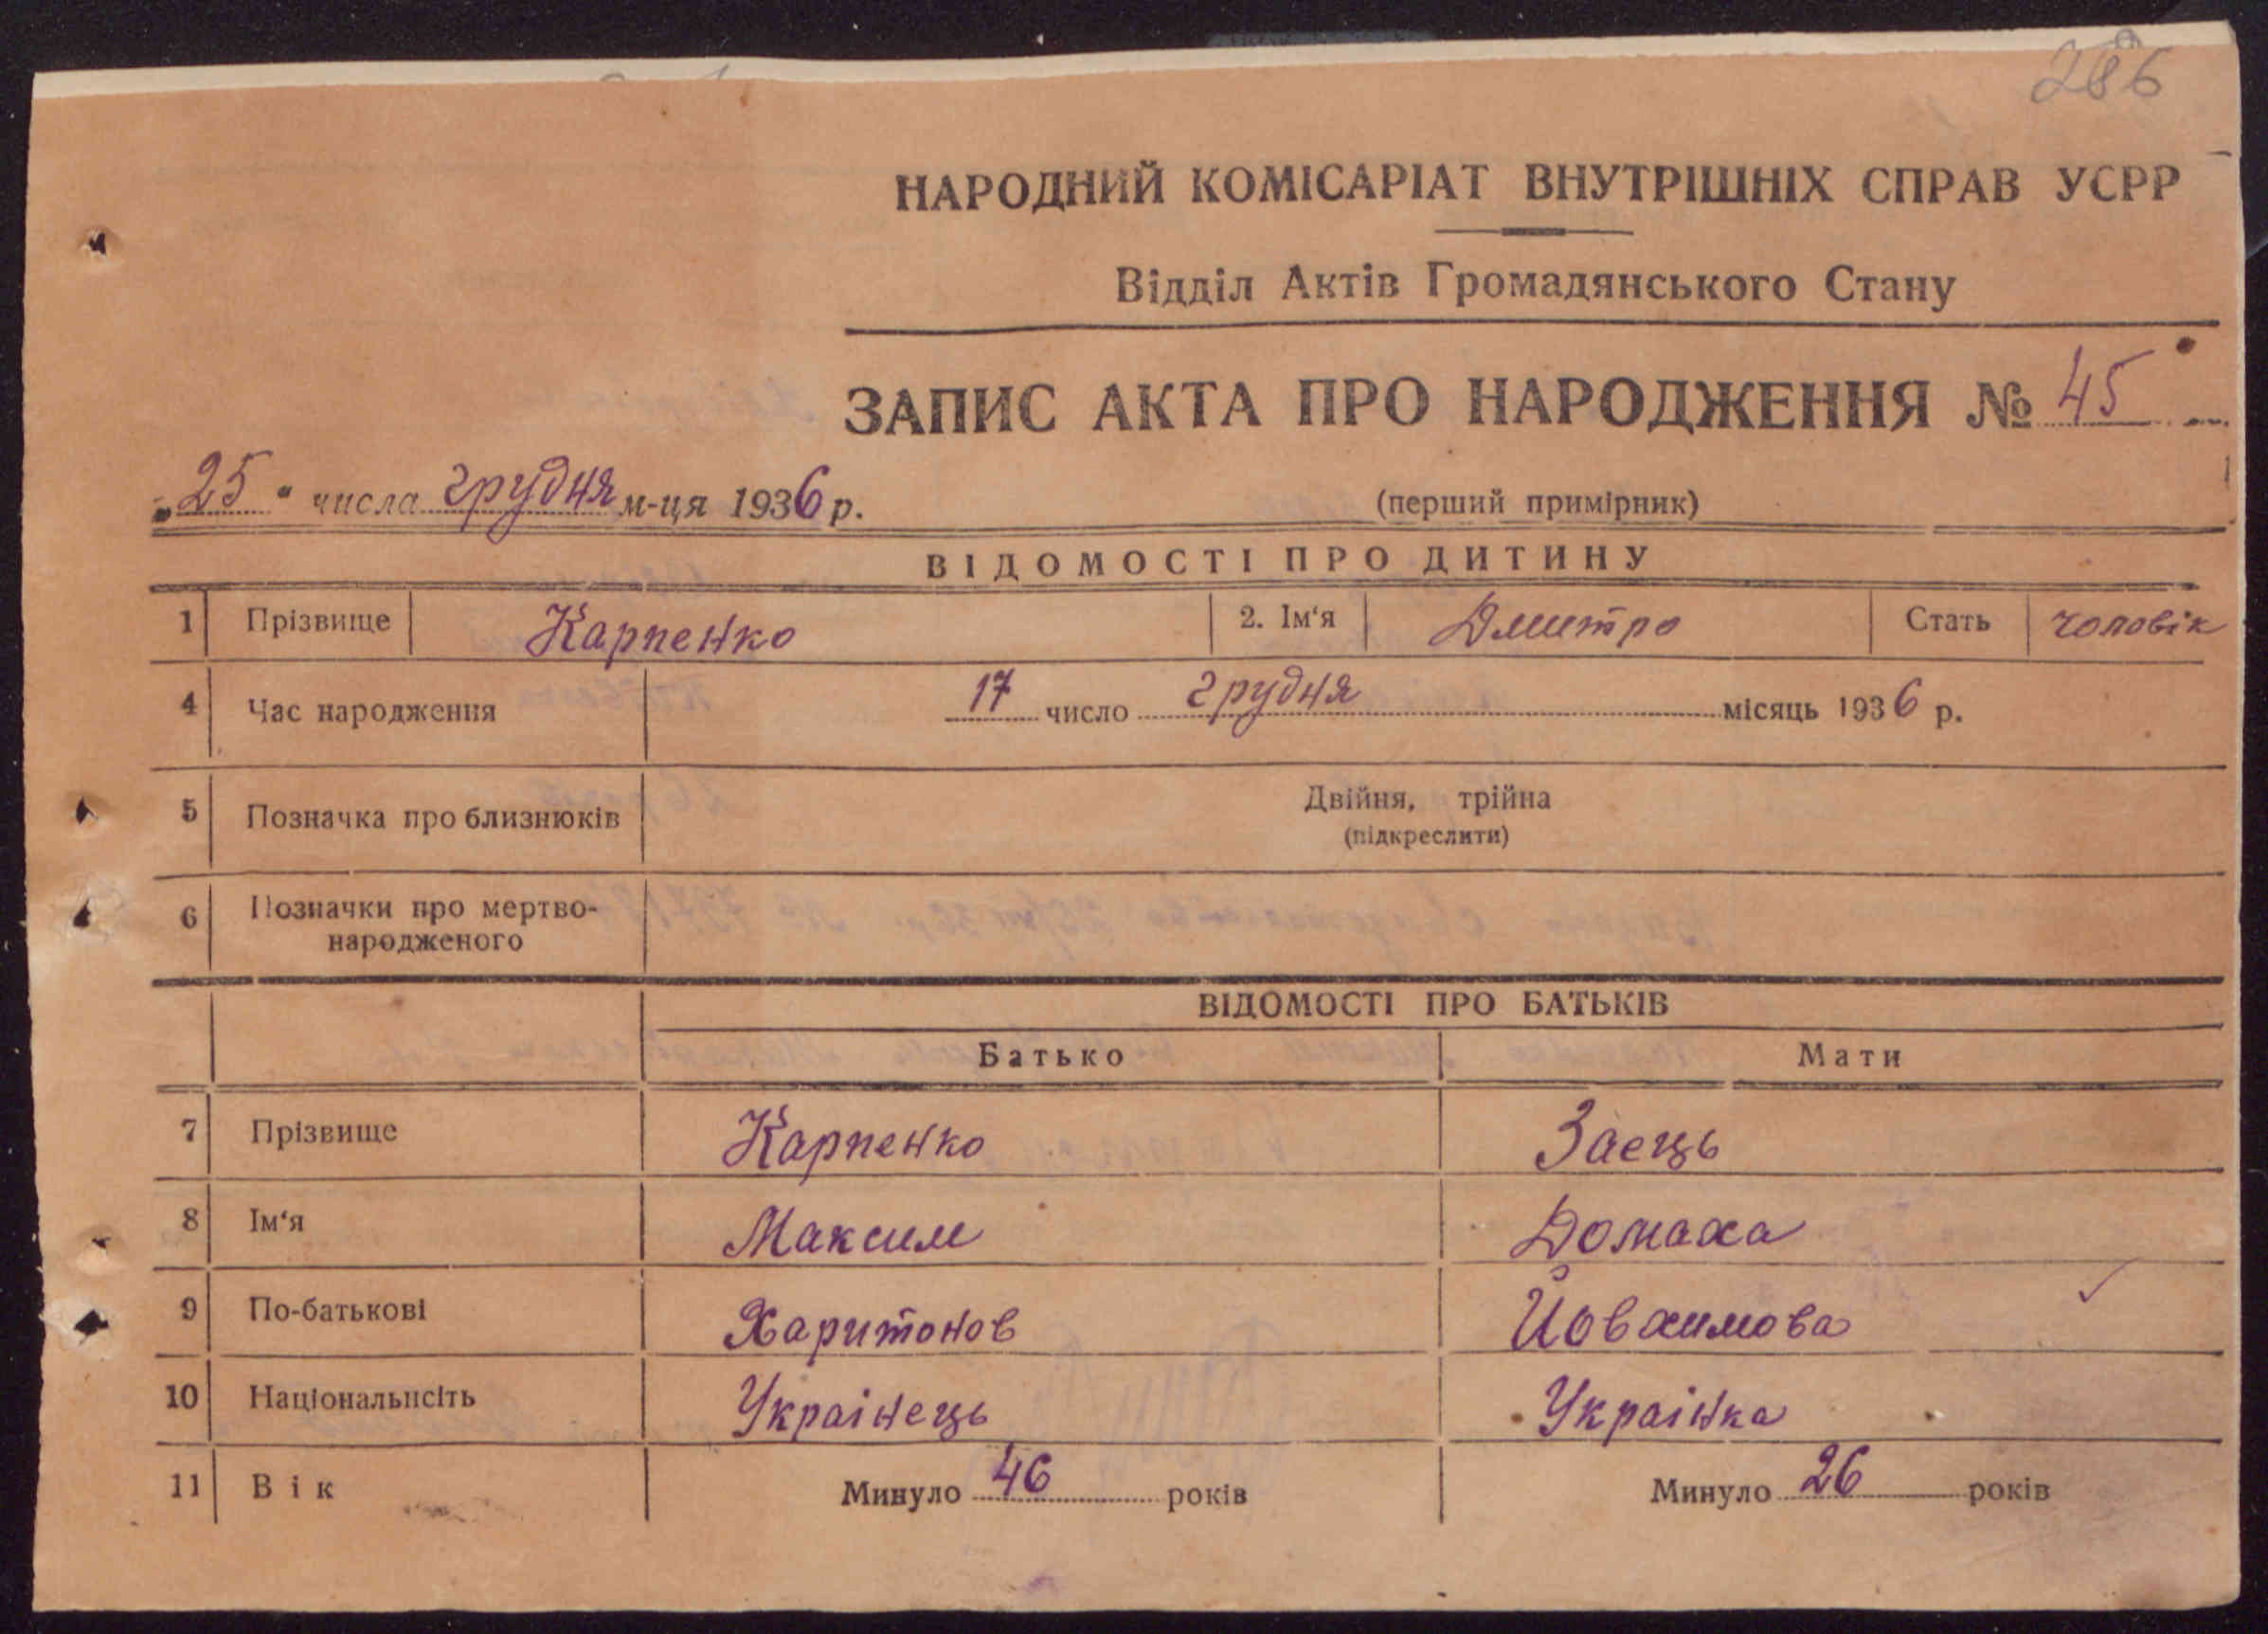 286
НАРОДНИЙ КОМІСАРІАТ ВНУТРІШНІХ СПРАВ УСРР
Відділ Актів Громадянського Стану
ЗАПИС АКТА ПРО НАРОДЖЕННЯ № 45
„25“ числа грудня м-ця 1936 р.
(перший примірник)
ВІДОМОСТІ ПРО ДИТИНУ
1 Прізвище Карпенко 2. Ім‘я Дмитро Стать чоловік
4 Час народження 17 число грудня місяць 1936 р.
5 Позначка про близнюків Двійня, трійна
(підкреслити)
6 Позначки про мертво-
народженого
ВІДОМОСТІ ПРО БАТЬКІВ
Батько Мати
7 Прізвище Карпенко Заець
8 Ім‘я Максим Домаха
9 По-батькові Харитонов Йовхимова
10 Національнсіть Украінець Украінка
11 Вік Минуло 46 років Минуло 26 років